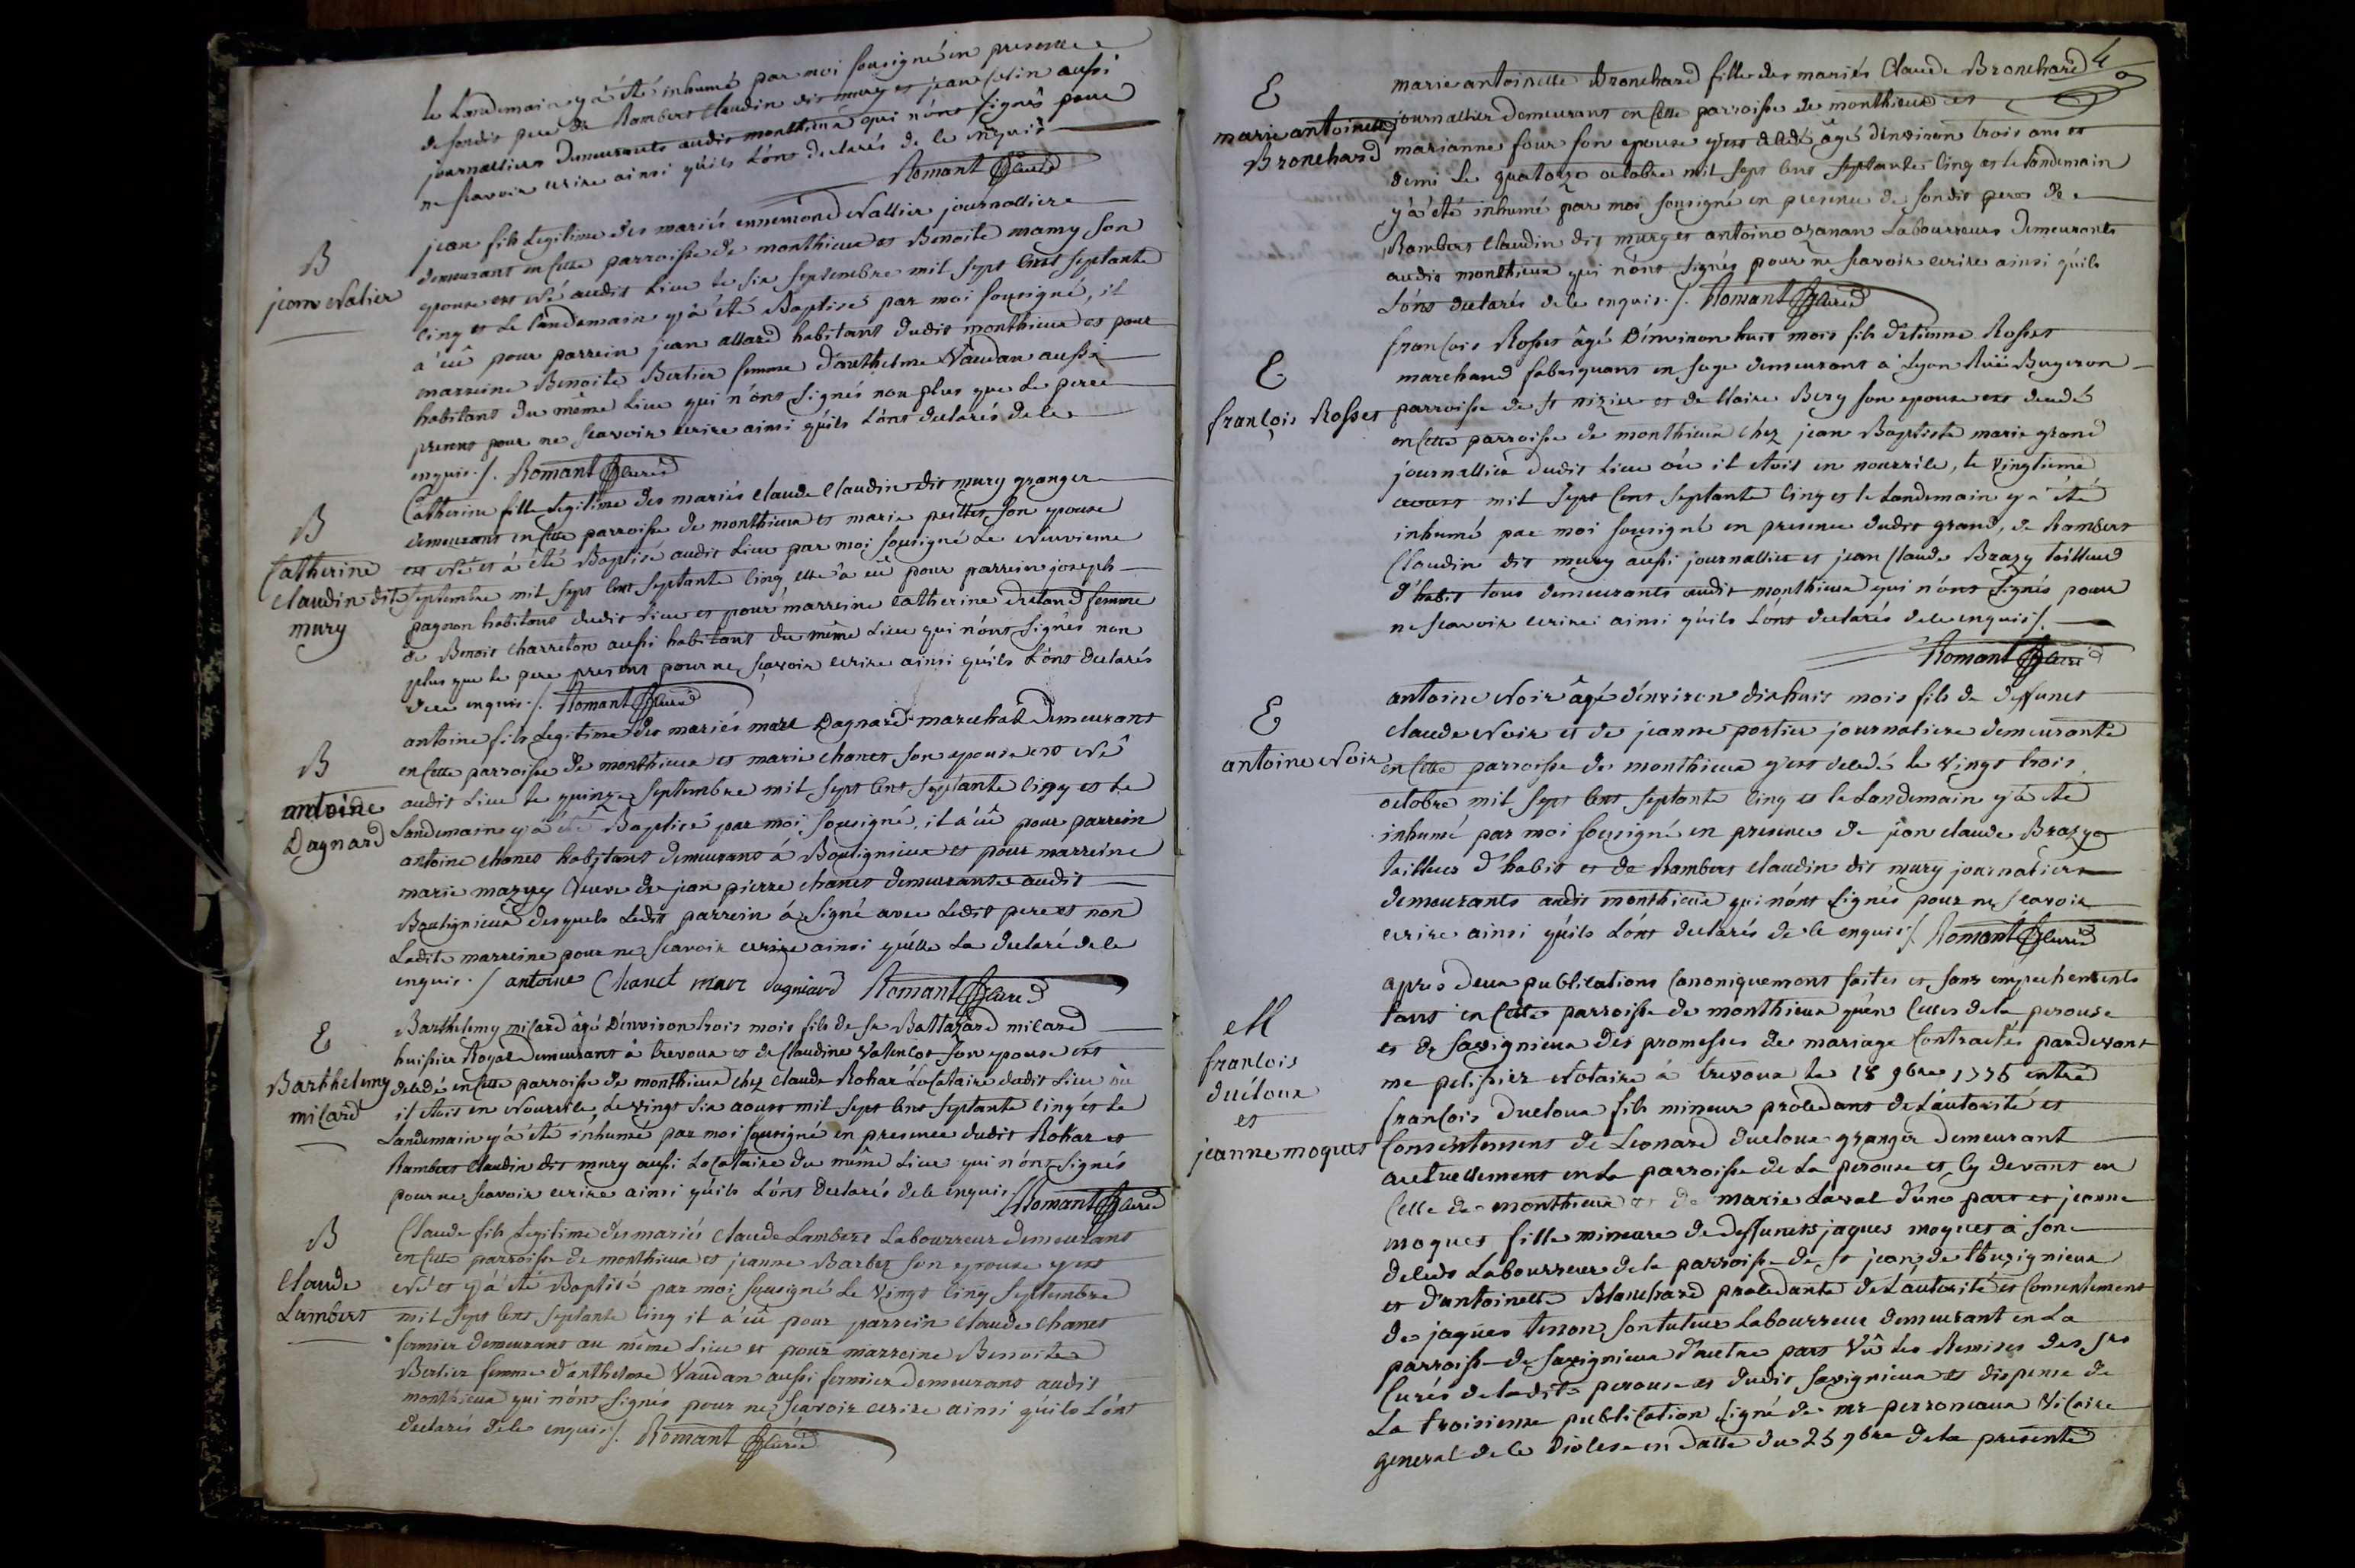 le Landemain y à été inhumé par moi sousigné en presence
de sondit pere de Rambert Claudin dit mury et jean
journalliers demeurants audit monthieux qui n'ont signés pour
ne scavoir ecrire ainsi qu'ils L'ont declarés de ce enquis
Romant Curé
B
jean Nalier
jean fils Legitime des mariés ennemond Nallier journallier
demeurant en cette parroisse de monthieux et Benoite mamy son
epouse est né audit Lieu le six septembre mil sept cent septante
cinq et Le landemain y à été Baptisé par moi sousigné, il
à eû pour parrein jean allard habitant dudit monthieux et pour
marreine Benoite Bertier femme d'anthelme Vaudan aussi
habitant du même Lieu qui n'ont signés non plus que Le pere
present pour ne scavoir ecrire ainsi qu'ils L'ont declarés de ce
enquis ./. Romant Curé
B
Catherine
Claudin dit
mury
Catherine fille Legitime des mariés Claude Claudin dit mury granger
demeurant en cette parroisse de monthieux et marie son epouse
est née et à été Baptisé audit Lieu par moi sousigné Le neuvieme
septembre mil sept cent septante cinq, elle à eû pour parrein joseph
pagnon habitant dudit Lieu et pour marreine Catherine femme
de Benoit Charreton aussi habitant du même Lieu qui n'ont signés non
plus que le pere present pour ne scavoir ecrire ainsi qu'ils L'ont declarés
de ce enquis ./. Romant Curé
B
antoine
Dagnard
antoine fils Legitime des mariés marc Dagnard marechal demeurant
en cette parroisse de monthieux et marie chanet son epouse est né
audit Lieu le quinze septembre mil sept cent septante cinq et le
Landemain y à été Baptisé par moi sousigné, il à eû pour parrein
antoine chanet habitant demeurant à Bouligneux et pour marreine
marie mazuy veuve de jean pierre chanet demeurante audit
Bouligneux desquels Ledit parrein à signé avec Ledit pere et non
Ladite marreine pour ne scavoir ecrire ainsi qu'elle La declaré de ce
enquis ./ antoine Chanet marc dagniard Romant Curé
E
Barthelemy
milard
Barthelemy milard âgé D'environ trois mois fils de sr Baltazard milard
huissier Royal demeurant à trevoux et de Claudine son epouse est
decedé en cette parroisse de monthieux chez Claude Rohat Locataire dudit Lieu où
il étoit en Nourrice, Le vingt six aoust mil sept cent septante cinq et Le
Landemain y à été inhumé par moi sousigné en presence dudit Rohat et
Rambert Claudin dit mury aussi Locataire du même Lieu qui n'ont signés
pour ne scavoir ecrire ainsi qu'ils L'ont declarés de ce enquis ./. Romant Curé
B
Claude
Lambert
Claude fils Legitime des mariés Claude Lambert Labourreur demeurant
en cette parroisse de monthieux et jeanne Barbet son epouse y est
né et y à été Baptisé par moi sousigné Le vingt cinq septembre
mil sept cent septante cinq il à eû pour parrein Claude chanet
fermier demeurant au même Lieu et pour marreine Benoite
Bertier femme d'anthelme Vaudan aussi fermier demeurant audit
monthieux qui n'ont signés pour ne scavoir ecrire ainsi qu'ils L'ont
declarés de ce enquis ./. Romant Curé
4
E
marie antoinette
Bronchard
marie antoinette Bronchard fille des mariés Claude Bronchard
journallier demeurant en cette parroisse de monthieux et
marianne four son epouse y est decedé âgé d'environ trois ans et
demi Le quatorze octobre mil sept cent septante cinq et le Landemain
y à été inhumé par moi sousigné en presence de sondit pere de
Rambert Claudin dit mury et antoine ozanan Labourreurs demeurants
audit monthieux qui n'ont signés pour ne scavoir ecrire ainsi qu'ils
L'ont declarés de ce enquis ./. Romant Curé
E
françois Rosset
françois Rosset âgé D'environ huit mois fils d'etienne Rosset
marchand fabriquant en soye demeurant à Lyon Ruë Bugeron
parroisse de st nizier et de Claire Bery son epouse est decedé
en cette parroisse de monthieux chez jean Baptiste marie grand
journallier dudit Lieu où il étoit en nourrice, le vingtieme
aoust mil sept cent septante cinq et le Landemain y à été
inhumé par moi sousigné en presence dudit grand, de Rambert
Claudin dit mury aussi journallier et jean Claude Brazy tailleur
d'habit tous demeurants audit monthieux qui n'ont signés pour
ne scavoir ecrire ainsi qu'ils L'ont declarés de ce enquis ./.
Romant Curé
E
antoine Noir
antoine Noir âgé d'environ dixhuit mois fils de deffunct
claude Noir et de jeanne portier journaliere demeurante
en cette parroisse de monthieux y est decedé le vingt trois
octobre mil sept cent septante cinq et le Landemain y à été
inhumé par moi sousigné en presence de jean claude Brazy
tailleur d'habit et de Rambert Claudin dit mury journaliers
demeurants audit monthieux qui n'ont signés pour ne scavoir
ecrire ainsi qu'ils L'ont declarés de ce enquis ./. Romant Curé
M
françois
ducloux
et
jeanne moques
après deux publications Canoniquement faites et sans empechements
tant en cette parroisse de monthieux qu'en celles de la perouse
et de savigneux des promesses de mariage Contractés pardevant
me pelissier Notaire à trevoux le 18 9bre 1775 entre
françois Ducloux fils mineur procedant de L'autorité et
Consentement de Leonard ducloux granger demeurant
actuellement en La parroisse de La perouse et cy devant en
celle de monthieux et de marie Laval d'une part et jeanne
moques fille mineure de deffuncts jaques moques à son
deceds Labourreur de la parroisse de st jean de thurigneux
et d'antoinette Blanchard procedante de L'autorité et Consentement
de jaques tenon son tuteur Labourreur demeurant en La
parroisse de savigneux d'autre part Vû les Remises des srs
Curés de ladite perouse et dudit savigneux et dispense de
La troisieme publication signé de mr perroneaux Vicaire
general de ce diocese en datte du 25 9bre de la presente